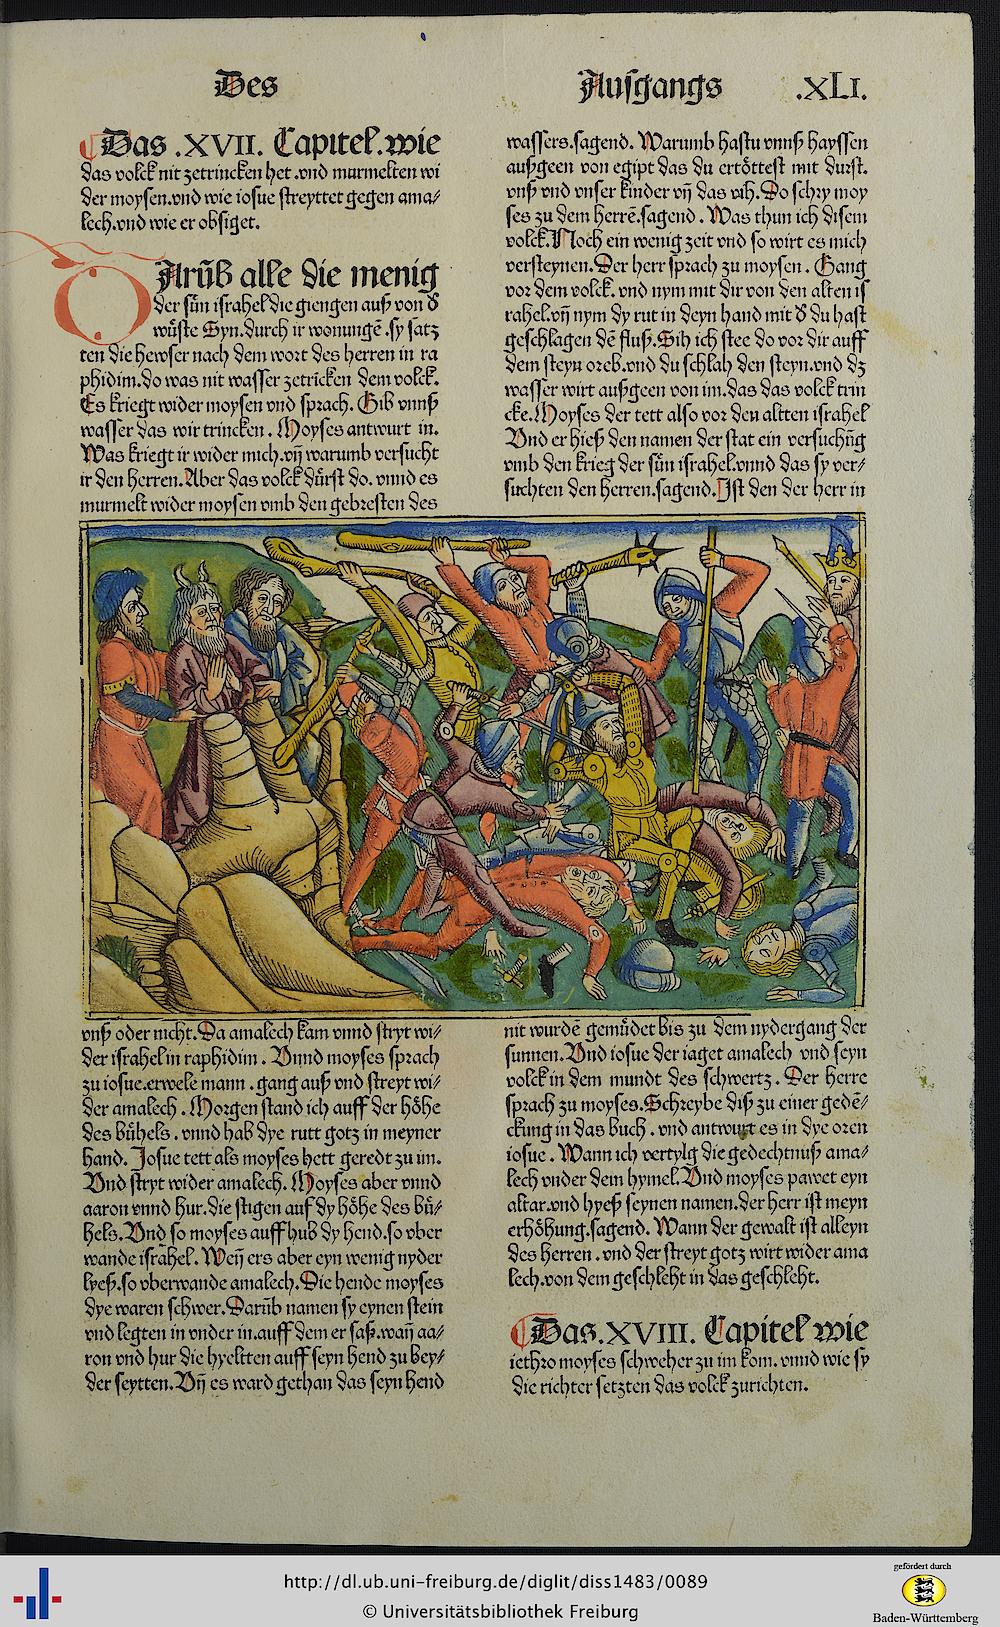 Des Ausgangs .XLI.
Das .XVII. Capitel. wie
das volck nit zetrincken het. vnd murmelten wi
der moysen. vnd wie iosue streyttet gegen ama⸗
lech. vnd wie er obsiget.
DArūb alle die menig
der sün israhel die giengen auß von d̕
wüste Syn. durch ir wonungē. sy satz
ten die hewser nach dem wort des herren in ra
phidim. do was nit wasser zetrīcken dem volck.
Es kriegt wider moysen vnd sprach. Gib vnnß
wasser das wir trincken. Moyses antwurt in.
Was kriegt ir wider mich. vn̄ warumb versucht
ir den herren. Aber das volck dürst do. vnnd es
murmelt wider moysen vmb den gebresten des
wassers. sagend. Warumb hastu vnnß hayssen
außgeen von egipt das du ertöttest mit durst.
vnß vnd vnser kinder vn̄ das vih. Do schry moy
ses zu dem herrē. sagend. Was thun ich disem
volck. Noch ein wenig zeit vnd so wirt es mich
versteynen. Der herr sprach zu moysen. Gang
vor dem volck. vnd nym mit dir von den alten is
rahel. vn̄ nym dy rut in deyn hand mit d̕ du hast
geschlagen dē fluß. Sih ich stee do vor dir auff
dem steyn oreb. vnd du schlah den steyn. vnd dz
wasser wirt außgeen von im. das das volck trin
cke. Moyses der tett also vor den altten israhel
Vnd er hieß den namen der stat ein versuchūg
vmb den krieg der sün israhel. vnnd das sy ver⸗
suchten den herren. sagend. Ist den der herr in
vnß oder nicht. Da amalech kam vnnd stryt wi⸗
der israhel in raphidim. Vnnd moyses sprach
zu iosue. erwele mann. gang auß vnd streyt wi⸗
der amalech. Morgen stand ich auff der höhe
des bühels. vnnd hab dye rutt gotz in meyner
hand. Iosue tett als moyses hett geredt zu im.
Vnd stryt wider amalech. Moyses aber vnnd
aaron vnnd hur. die stigen auf dy höhe des bü⸗
hels. Vnd so moyses auff hub dy hend. so vber
wande israhel. Wen̄ ers aber eyn wenig nyder
lyeß. so vberwande amalech. Die hende moyses
dye waren schwer. Darūb namen sy eynen stein
vnd legten in vnder in. auff dem er saß. wan̄ aa⸗
ron vnd hur die hyeltten auff seyn hend zu bey⸗
der seytten. Vn̄ es ward gethan das seyn hend
nit wurdē gemüdet bis zu dem nydergang der
sunnen. Vnd iosue der iaget amalech vnd seyn
volck in dem mundt des schwertz. Der herre
sprach zu moyses. Schreybe diß zu einer gedē⸗
ckung in das buch. vnd antwurt es in dye oren
iosue. Wann ich vertylg die gedechtnuß ama⸗
lech vnder dem hymel. Vnd moyses pawet eyn
altar. vnd hyeß seynen namen. der herr ist meyn
erhöhung. sagend. Wann der gewalt ist alleyn
des herren. vnd der streyt gotz wirt wider ama
lech. von dem geschleht in das geschleht.
Das. XVIII. Capitel wie
iethro moyses schweher zu im kom. vnnd wie sy
die richter setzten das volck zurichten.
http://dl.ub.uni-freiburg.de/diglit/diss1483/0089
© Universitätsbibliothek Freiburg
gefördert durch
Baden-Württemberg